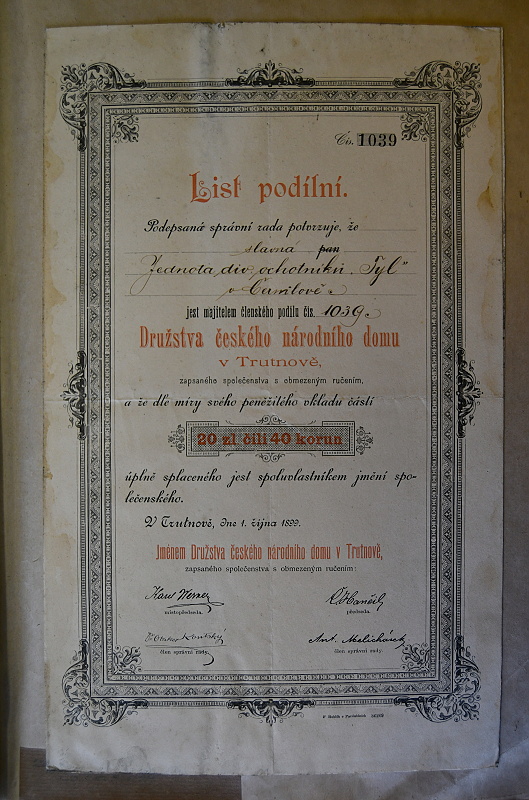 Čís. 1039
List podílní.
Podepsaná správní rada potvrzuje, že
slavná pan
Jednota div. ochotníků „Tyl"
v Černilově
jest majitelem členského podílu čís. 1039.
Družstva českého národního domu
v Trutnově,
zapsaného společenstva s obmezeným ručením,
a že dle míry svého peněžitého vkladu částí
20 zl. čili 40 korun
úplně splaceného jest spoluvlastníkem jmění spo-
lečenského.
V Trutnově, dne 1. října 1899.
Jménem Družstva českého národního domu v Trutnově,
zapsaného společenstva s obmezeným ručením:
Karel Werner
místopředseda. předseda.
Ant. Melichárek
člen správní rady. člen správní rady.